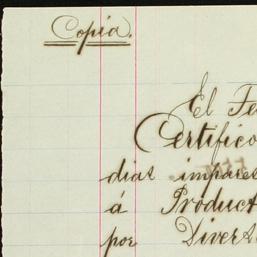 Copia.
El Te
Certifico
dias impares
á Product
por Divers